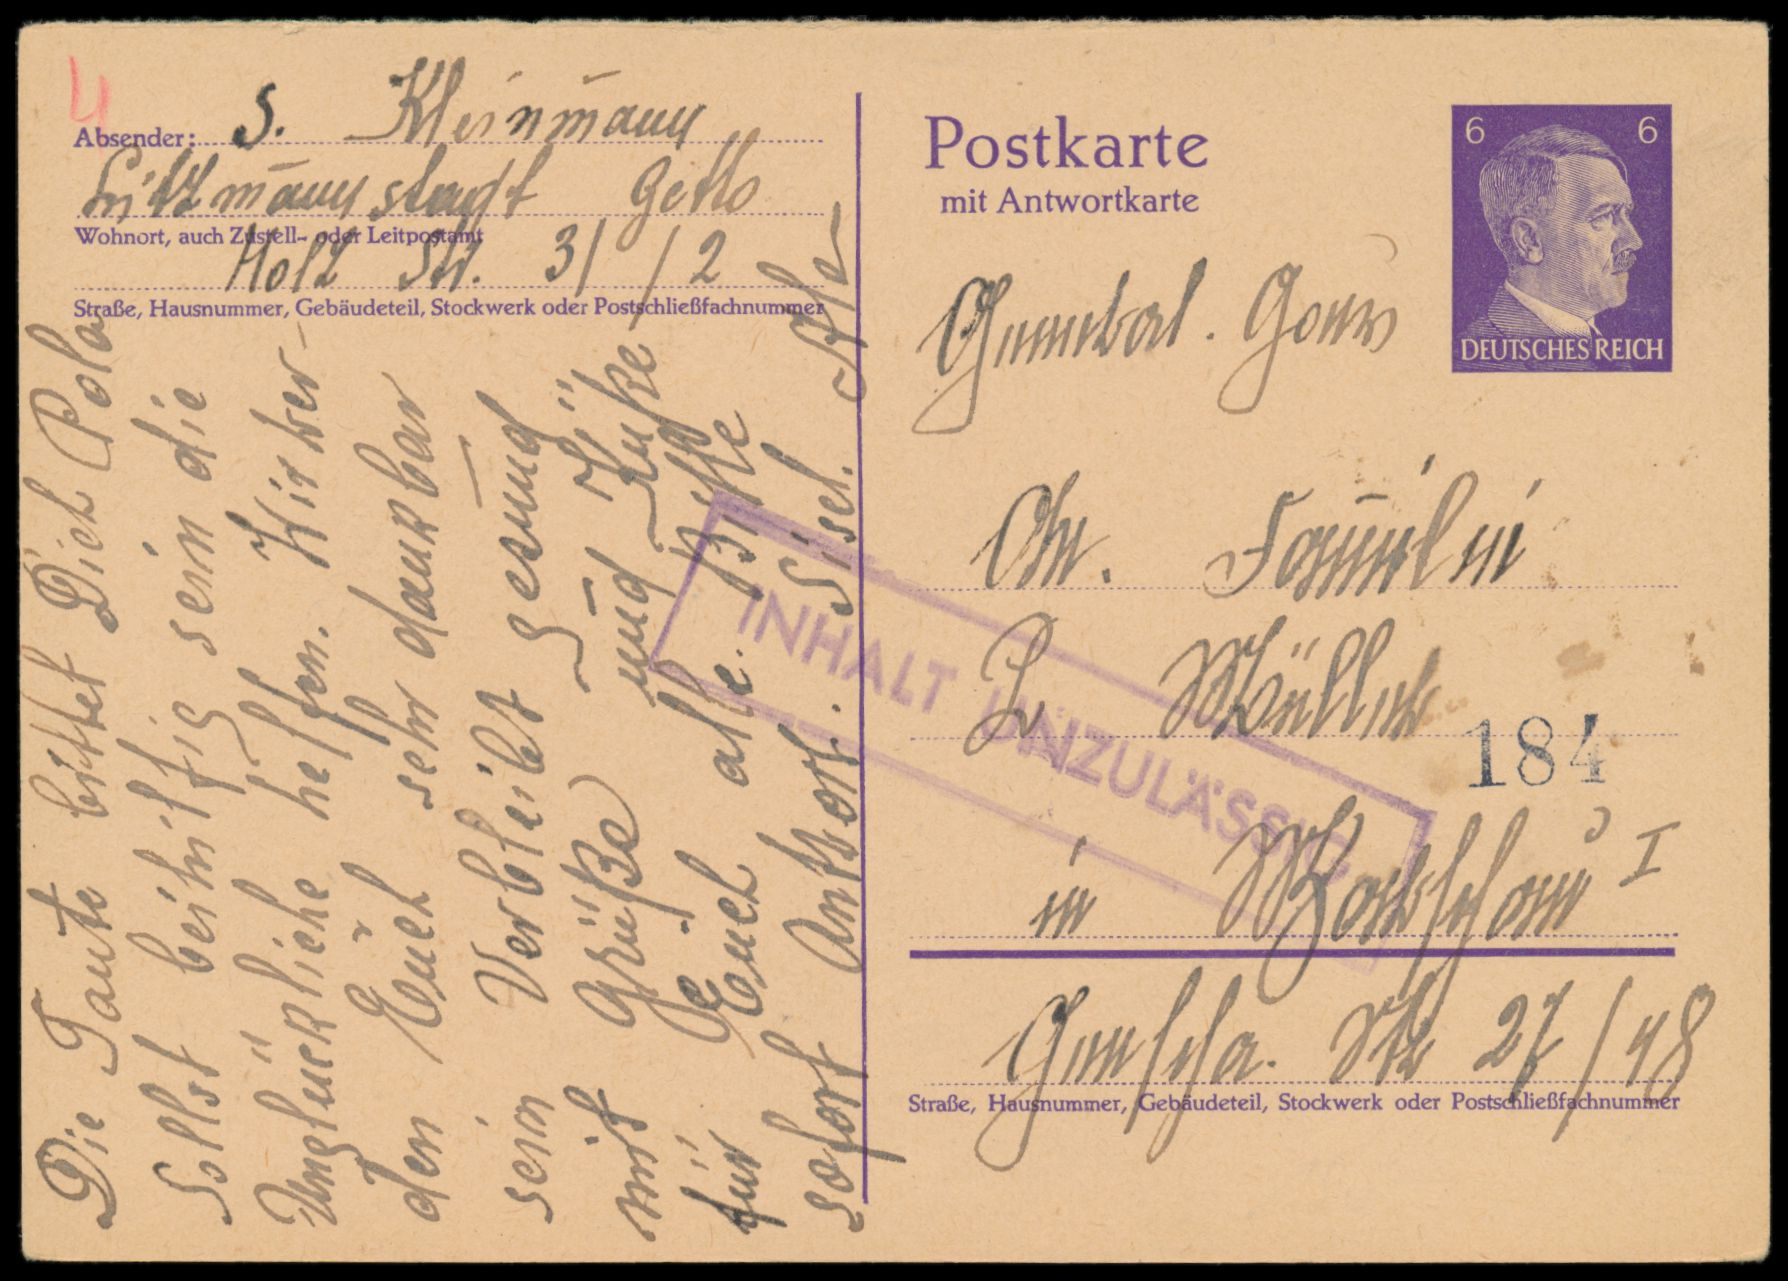 4
Absender: S. Kleinmann
Litzmannstadt Getto
Wohnort, auch Zustell- oder Leitpostamt
Holz Str. 31/2
Straße, Hausnummer, Gebäudeteil, Stockwerk oder Postschließfachnummer
Die Tante bittet Dich Pola
Sollst behilflig sein die
Unglückliche helfen. Wir wer-
den Euch sehr dankbar
sein Verbleibt gesund
mit Grüße und Küße
für Euch alle. Bitte
sofort Antwort. Sisel.
Postkarte
mit Antwortkarte
6 6
DEUTSCHES REICH
An. Familie
in Warschau I
INHALT UNZULÄSSIG
184
Genscha. Str 27/48
Straße, Hausnummer, Gebäudeteil, Stockwerk oder Postschließfachnummer